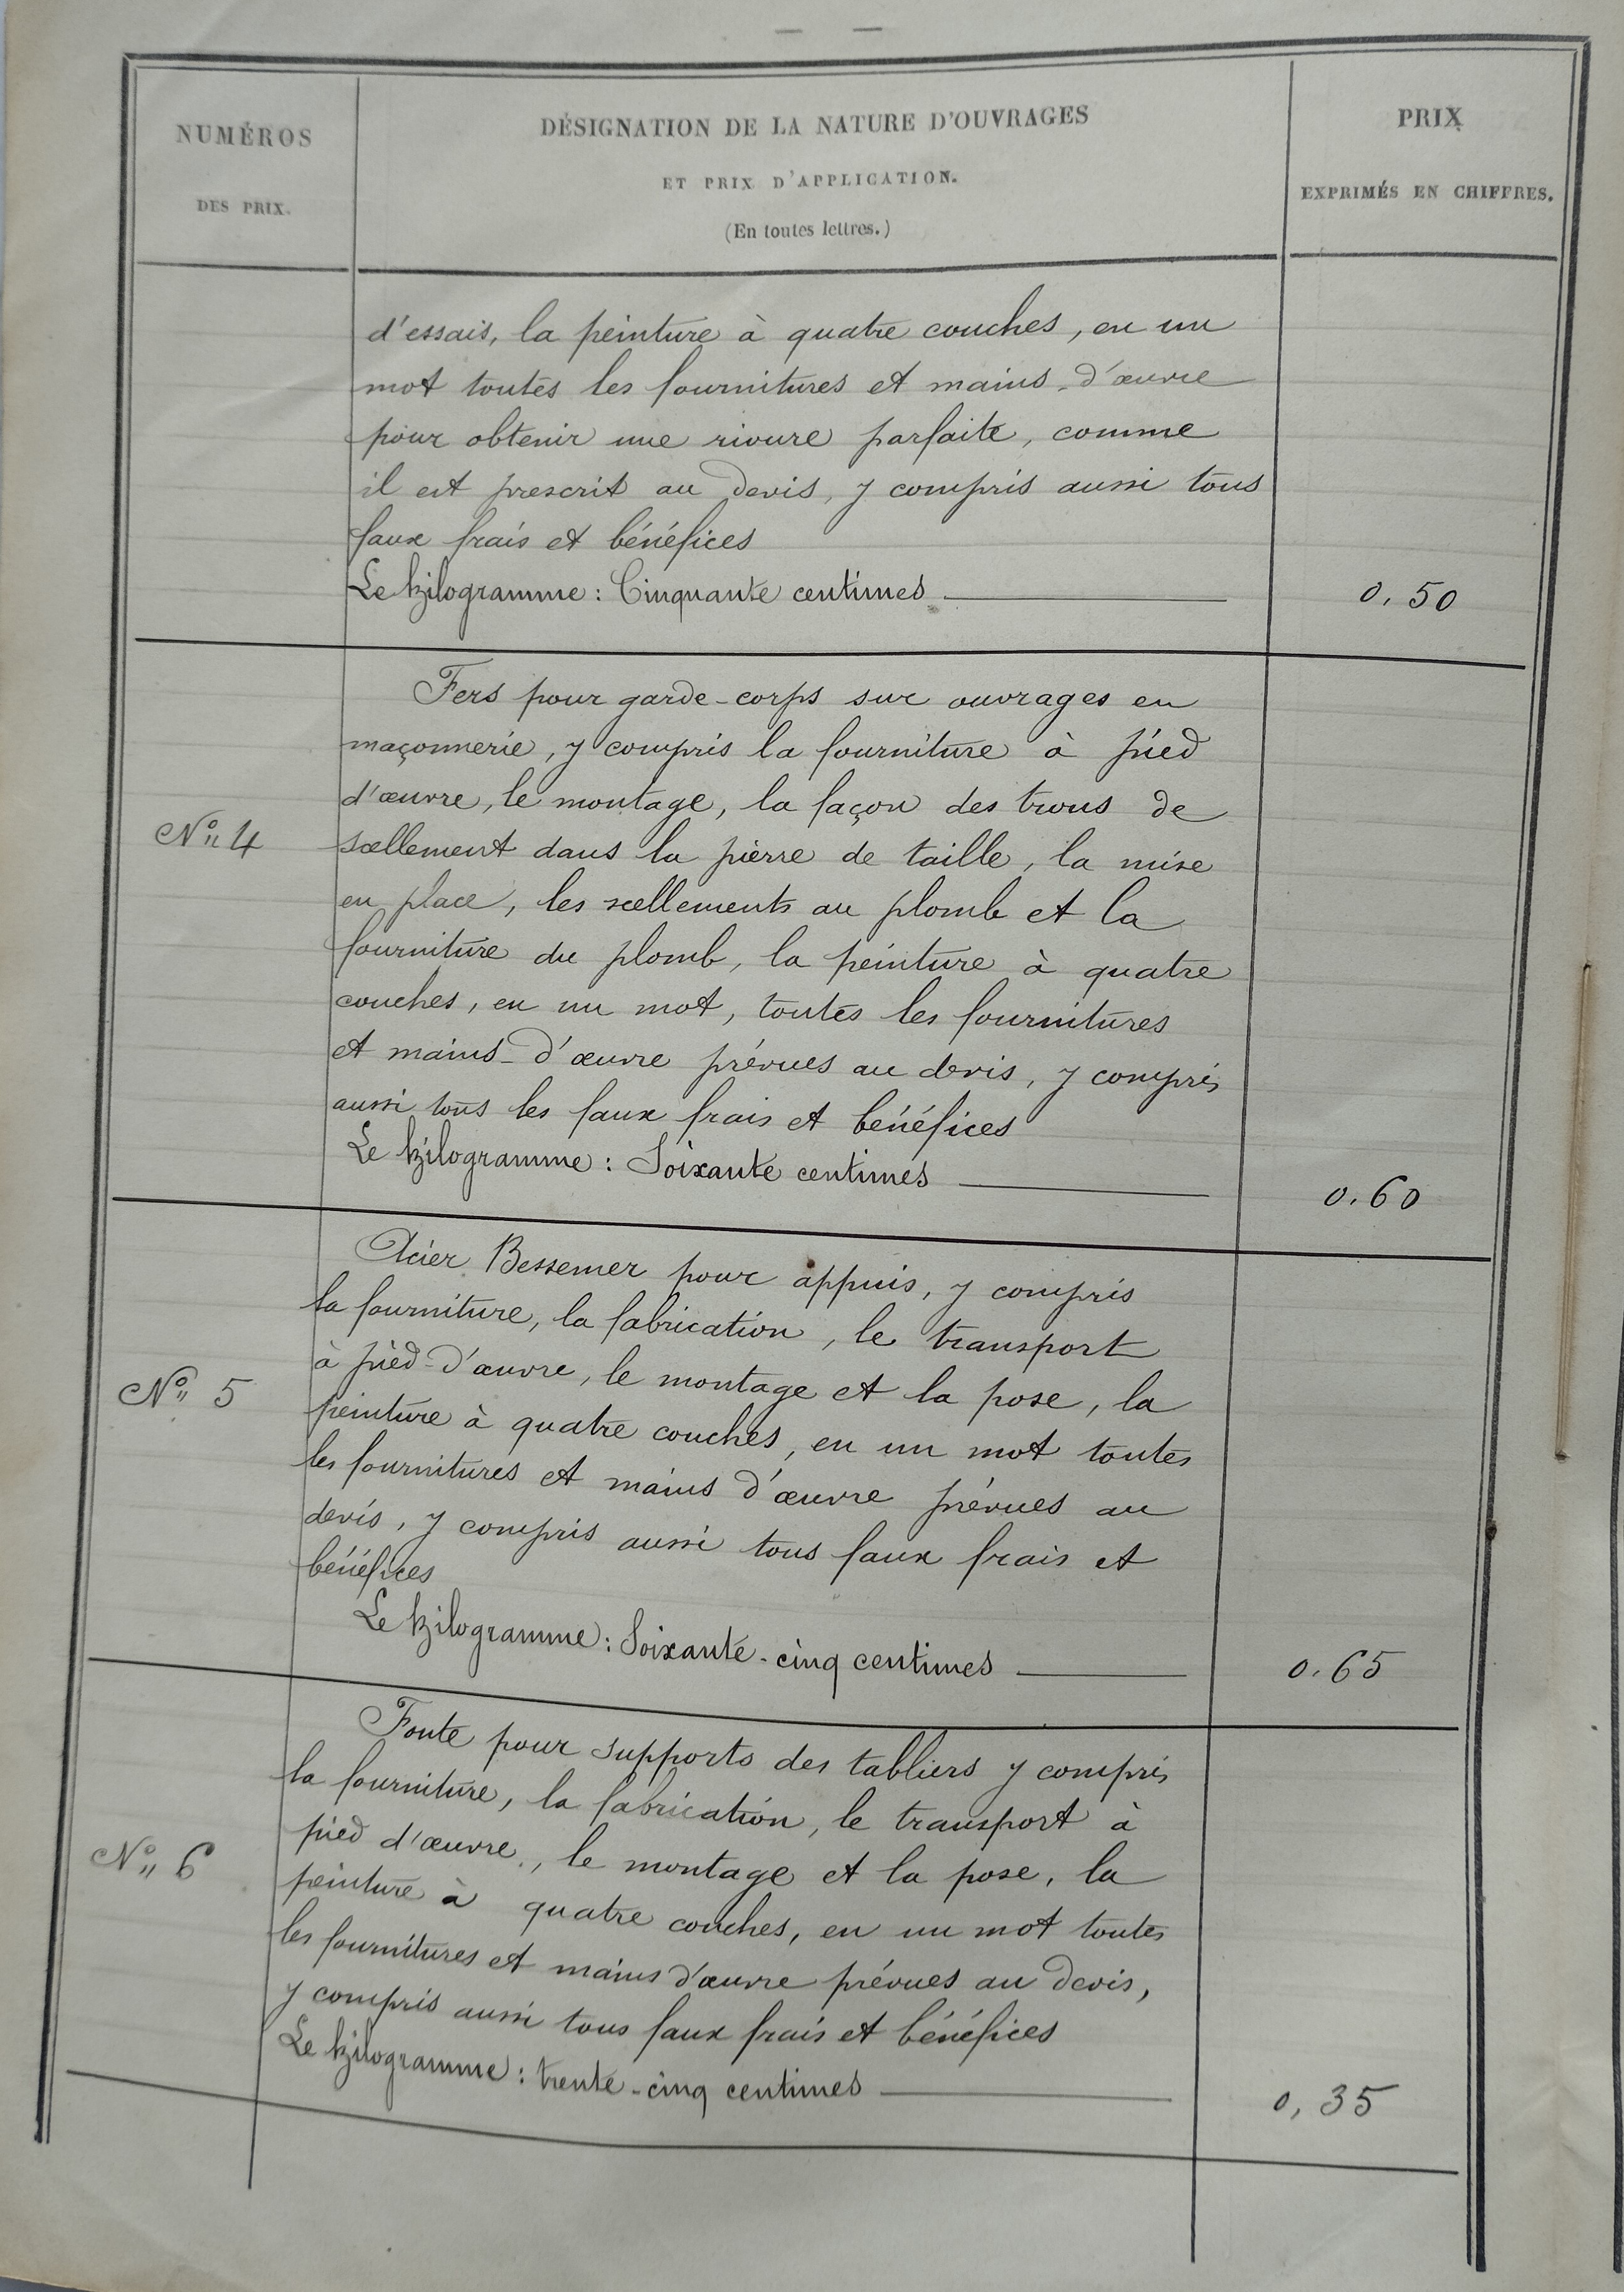 NUMÉROS
DES PRIX.
DÉSIGNATION DE LA NATURE D'OUVRAGES
ET PRIX D'APPLICATION.
(En toutes lettres.)
PRIX
EXPRIMÉS EN CHIFFRES.
d'essais, la peinture à quatre couches, en un
mot toutes les fournitures et mains-d'œuvre
pour obtenir une rivure parfaite, comme
il est prescrit au devis, y compris aussi tous
faux frais et bénéfices
Le kilogramme : Cinquante centimes
0,50
N° 4
Fers pour garde-corps sur ouvrages en
maçonnerie, y compris la fourniture à pied
d'œuvre, le montage, la façon des trous de
scellement dans la pierre de taille, la mise
en place, les scellements au plomb et la
fourniture du plomb, la peinture à quatre
couches, en un mot, toutes les fournitures
et mains-d'œuvre prévues au devis, y compris
aussi tous les faux frais et bénéfices
Le kilogramme : Soixante centimes
0,60
N° 5
Acier Bessemer pour appuis, y compris
la fourniture, la fabrication, le transport
à pied-d'œuvre, le montage et la pose, la
peinture à quatre couches, en un mot toutes
les fournitures et mains d'œuvre prévues au
devis, y compris aussi tous faux frais et
bénéfices
Le kilogramme : Soixante-cinq centimes
0,65
N° 6
Fonte pour supports des tabliers y compris
la fourniture, la fabrication, le transport à
pied d'œuvre, le montage et la pose, la
peinture à quatre couches, en un mot toutes
les fournitures et mains d'œuvre prévues au devis,
y compris aussi tous faux frais et bénéfices
Le kilogramme : trente-cinq centimes
0,35